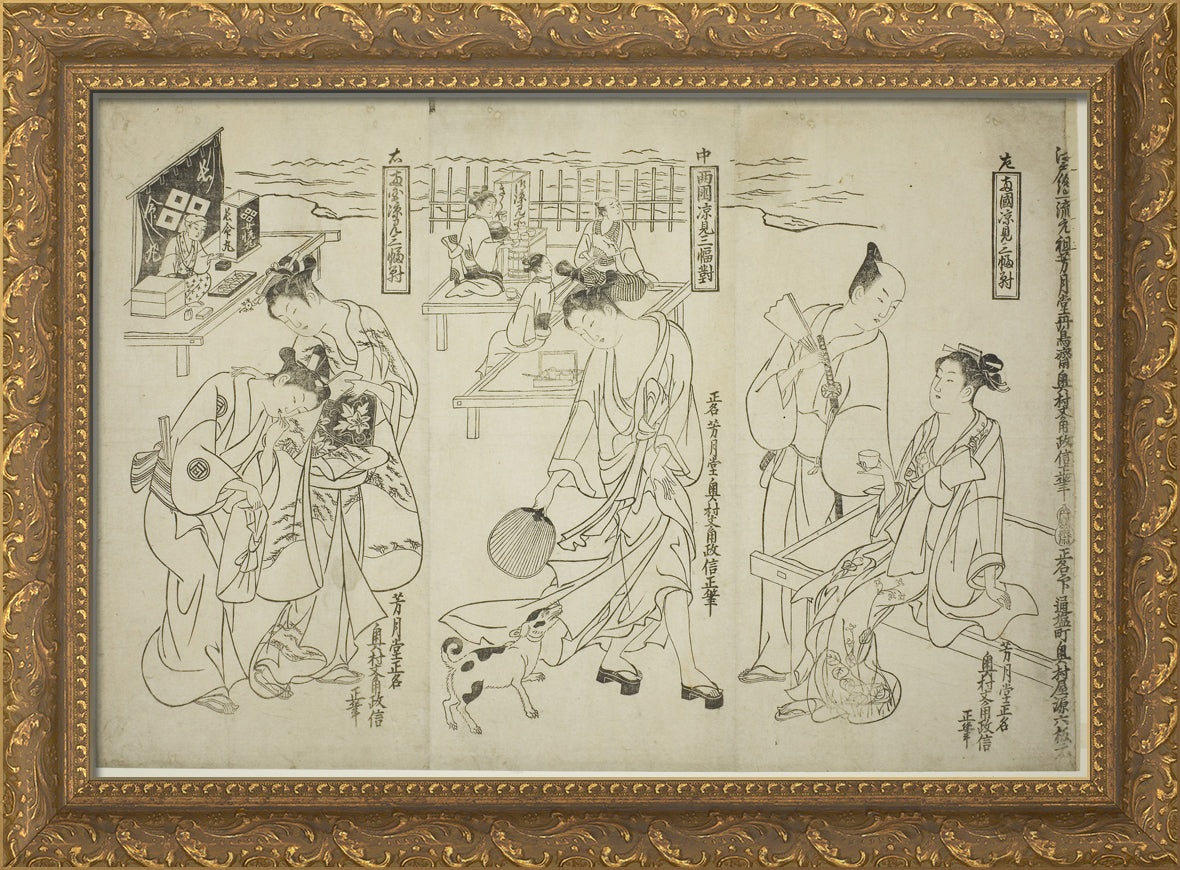 江戸繪一流元祖芳月堂丹鳥齋奥村文角政信正筆
通塩町奥村屋源六板
左
両國凉見三幅對
芳月堂正名
奥村文角政信
正筆
中
両國凉見三幅對
正名芳月堂奥村文角政信正筆
右
両国凉見三幅對
芳月堂正名
奥村文角政信
正筆
長命丸